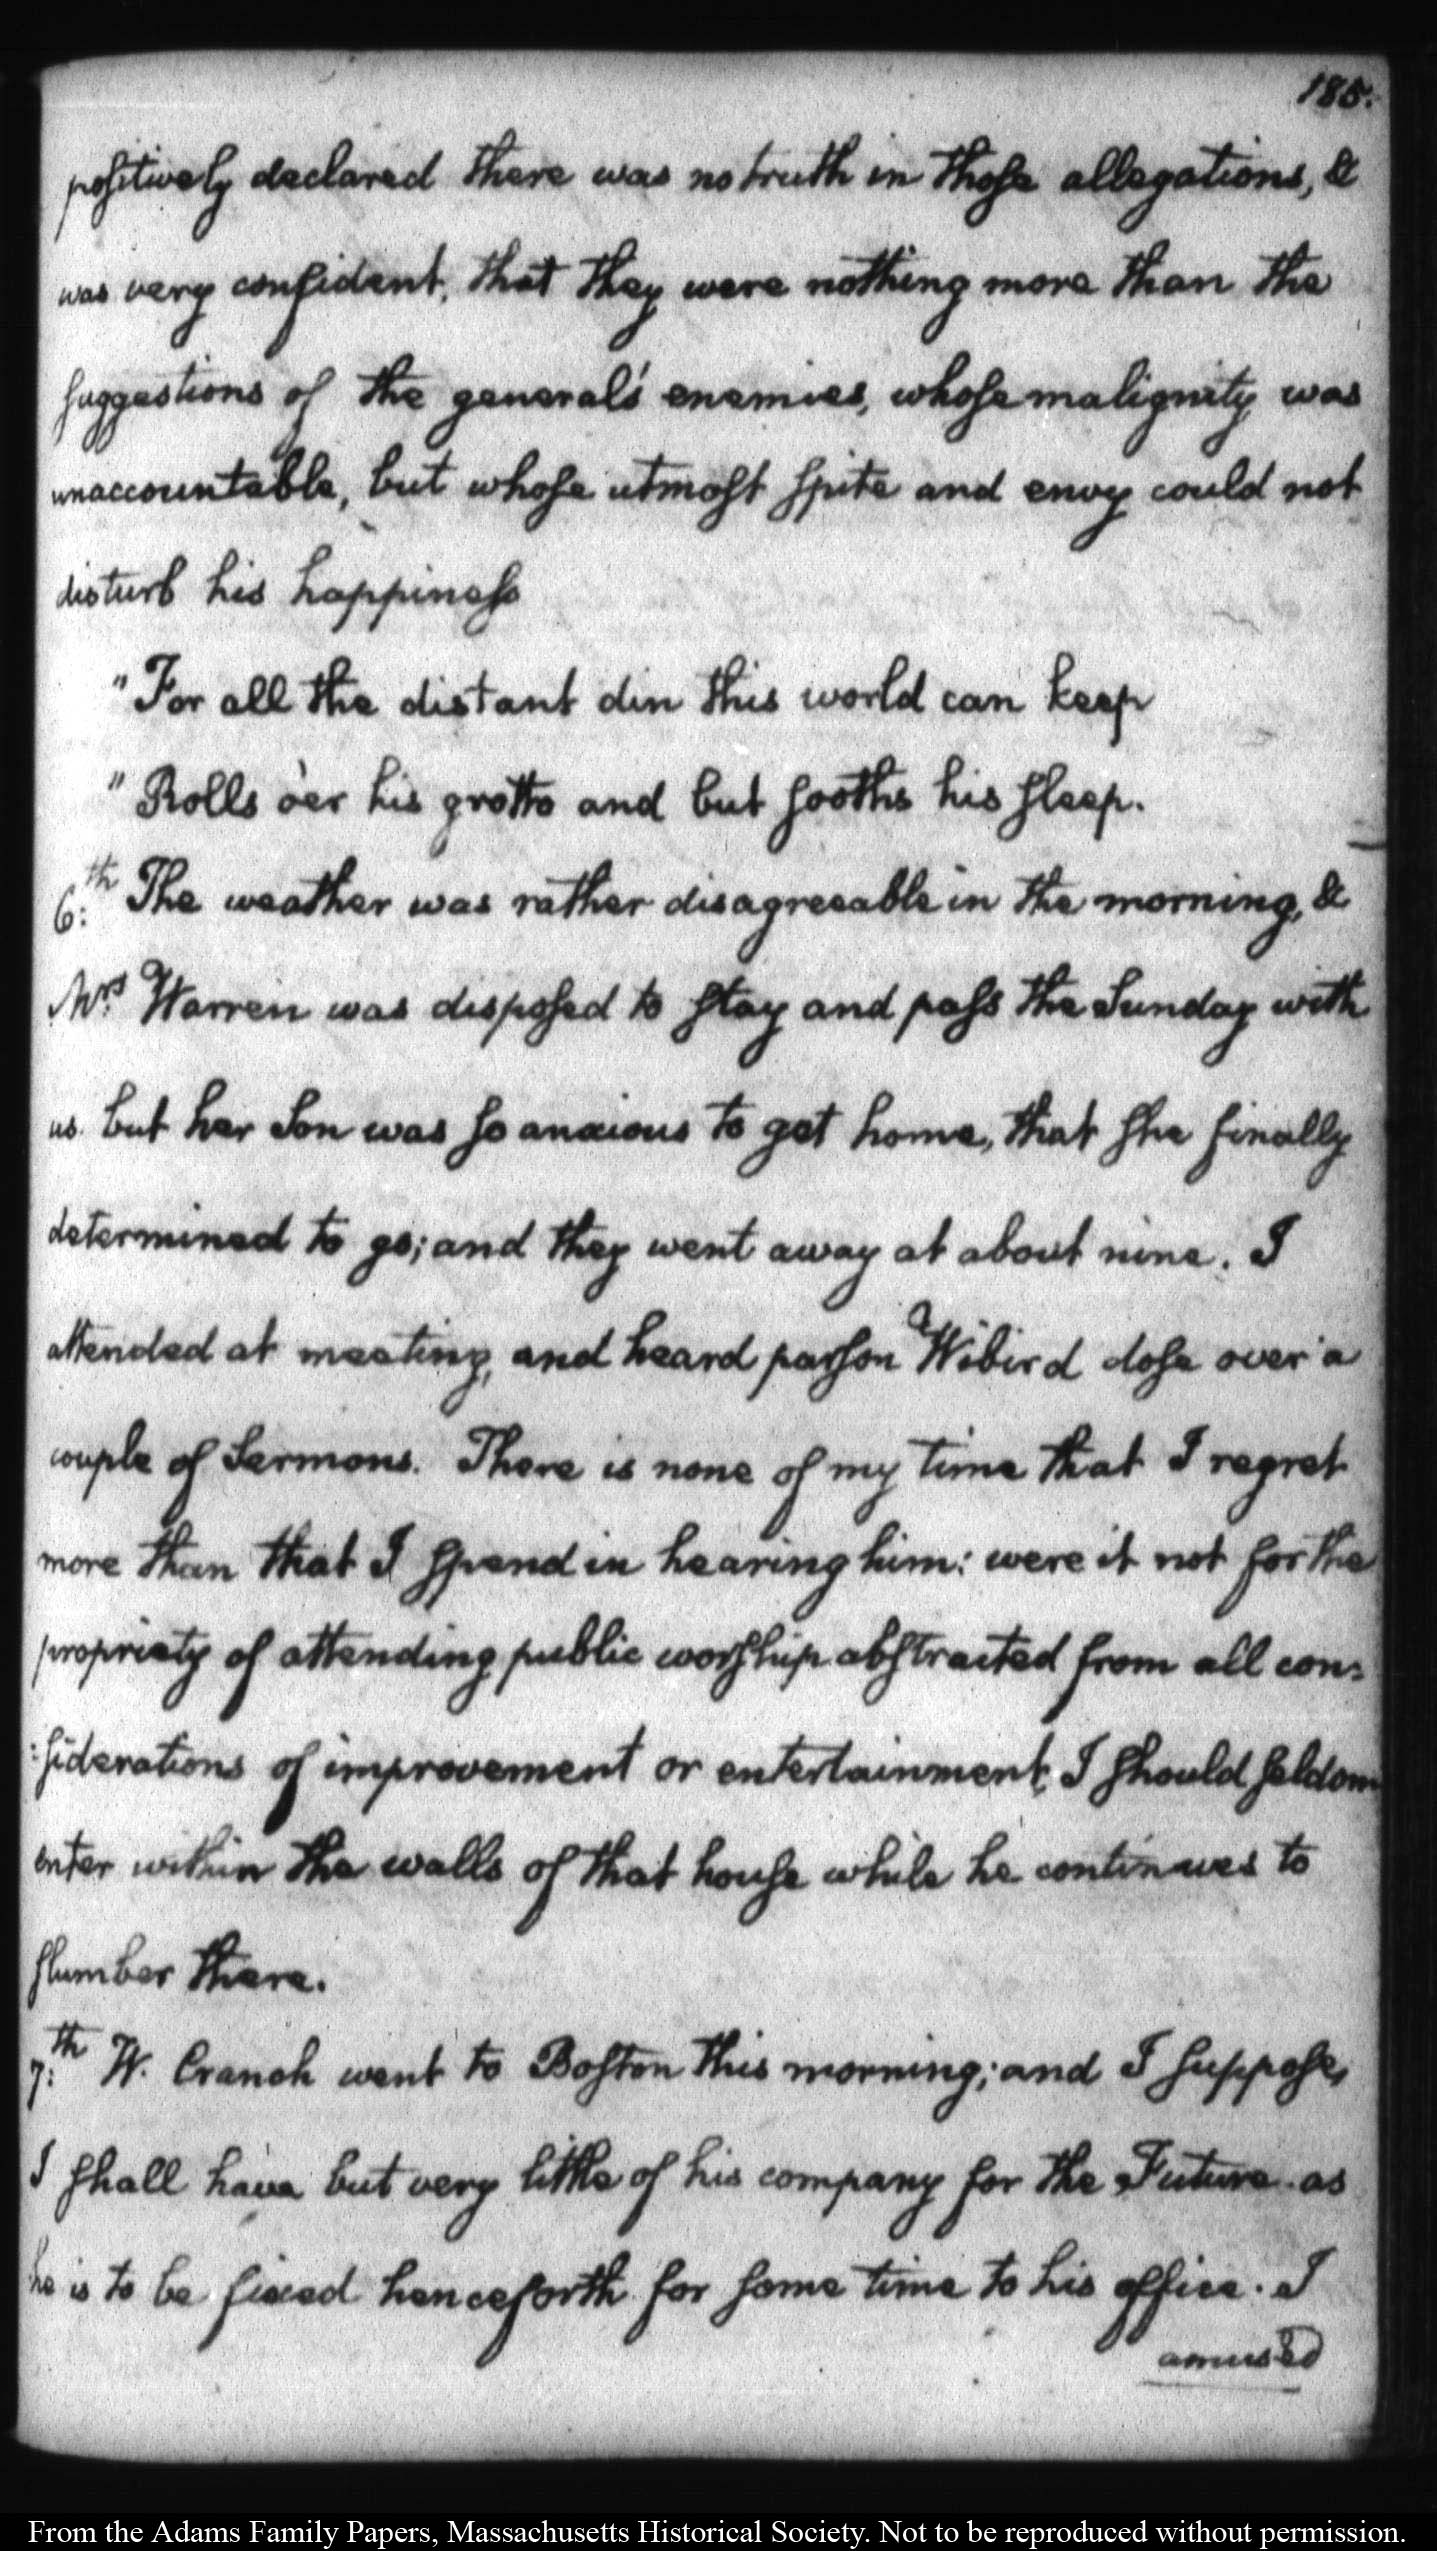 185.
positively declared there was no truth in those allegations, &
was very confident, that they were nothing more than the
suggestions of the general's enemies, whose malignity was
unaccountable, but whose utmost spite and envy could not
disturb his happiness
"For all the distant din this world can keep
"Rolls o'er his grotto and but sooths his sleep.
6:th The weather was rather disagreeable in the morning, &
Mrs. Warren was disposed to stay and pass the Sunday with
us. but her Son was so anxious to get home, that she finally
determined to go; and they went away at about nine. I
attended at meeting, and heard parson Wibird dose over a
couple of Sermons. There is none of my time that I regret
more than that I spend in hearing him: were it not for the
propriety of attending public worship abstracted from all con=
=siderations of improvement or entertainment, I should seldom
enter within the walls of that house while he continues to
slumber there.
7:th W. Cranch went to Boston this morning; and I suppose,
I shall have but very little of his company for the Future. as
he is to be fixed henceforth for some time to his office. I
amused
From the Adams Family Papers, Massachusetts Historical Society. Not to be reproduced without permission.